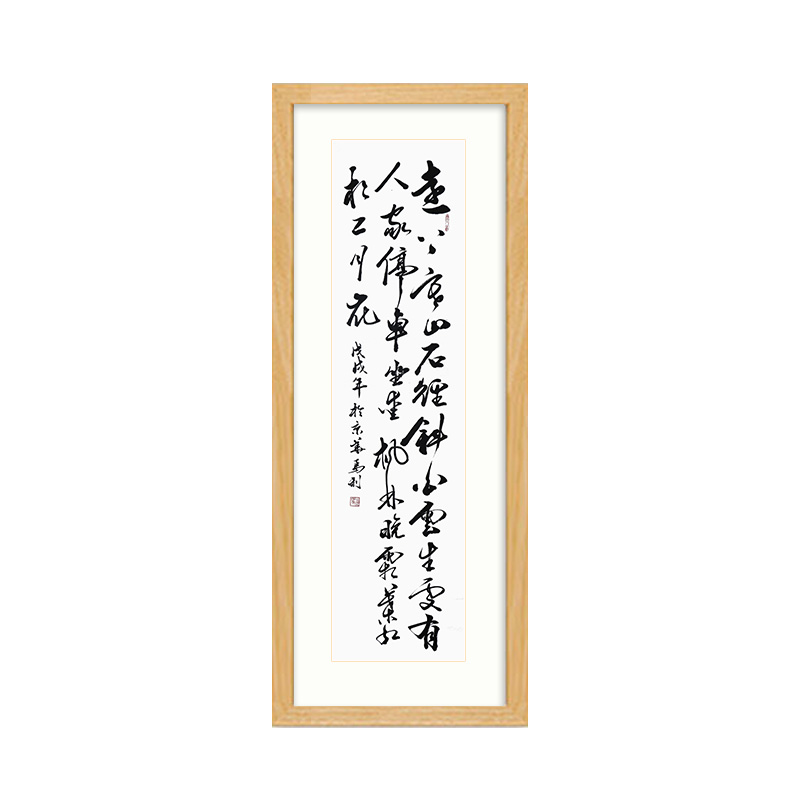 遠上寒山石徑斜白雲生處有
人家停車坐愛楓林晚霜葉紅
於二月花
戊戌年於京華馬利